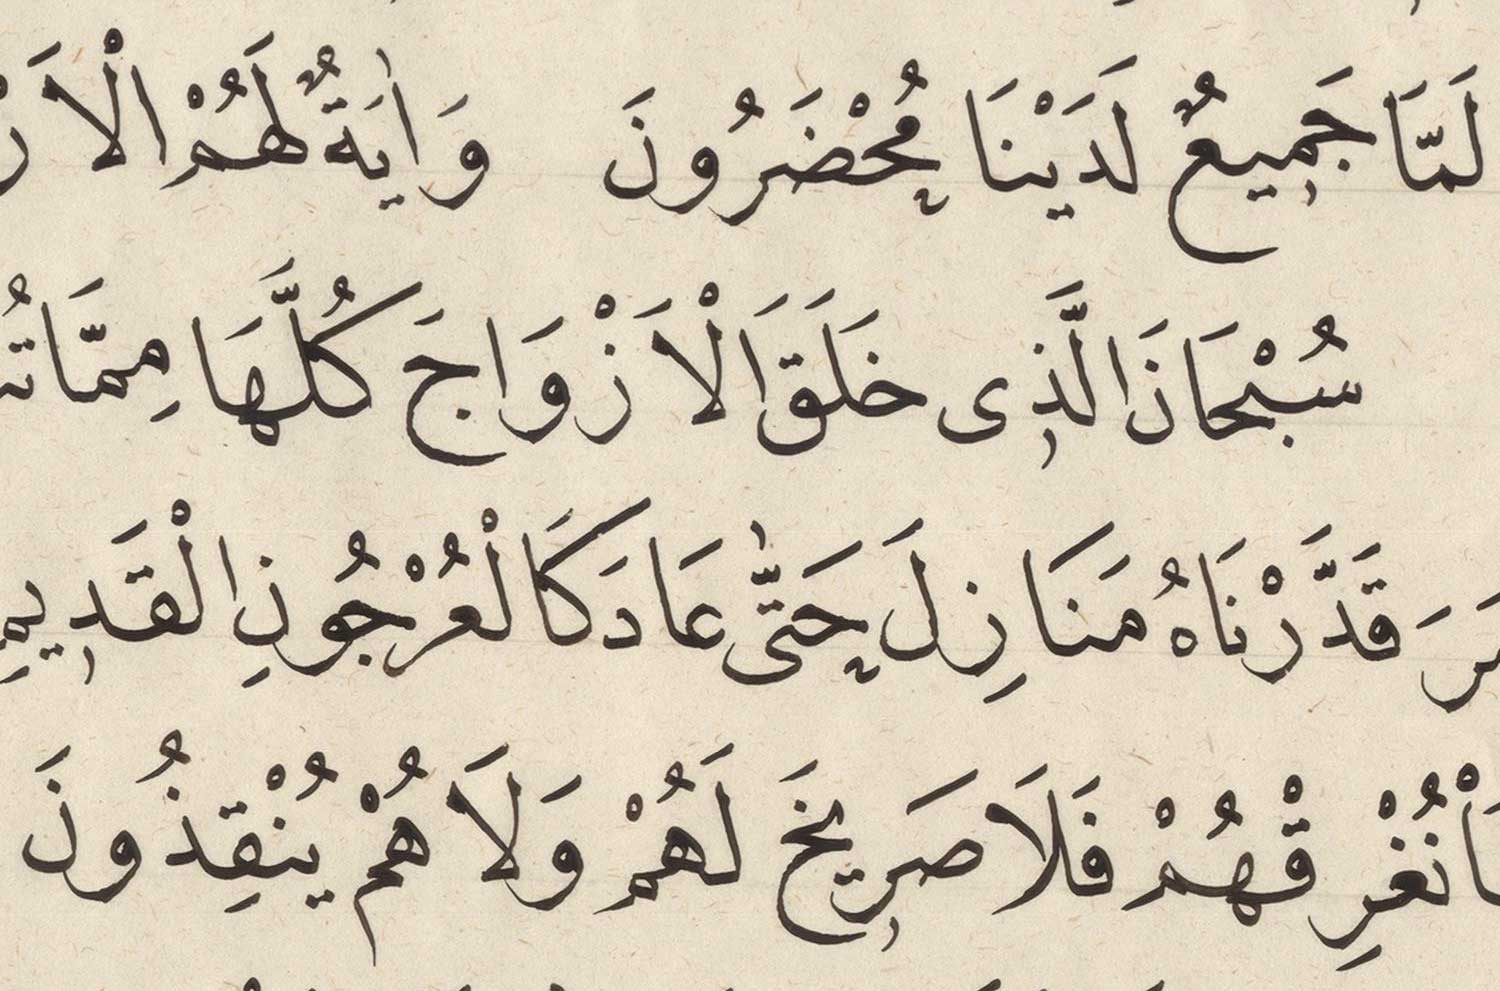 لَمَّا جَمِيعٌ لَدَيْنَا مُحْضَرُونَ وَاٰيَةٌ لَهُمُ الْاَرْ
سُبْحَانَ الَّذِى خَلَقَ الْاَزْوَاجَ كُلَّهَا مِمَّا تُ
قَدَّرْنَاهُ مَنَازِلَ حَتّٰى عَادَ كَالْعُرْجُونِ الْقَدِيمِ
نُغْرِقْهُمْ فَلَا صَرِيخَ لَهُمْ وَلَا هُمْ يُنْقَذُونَ